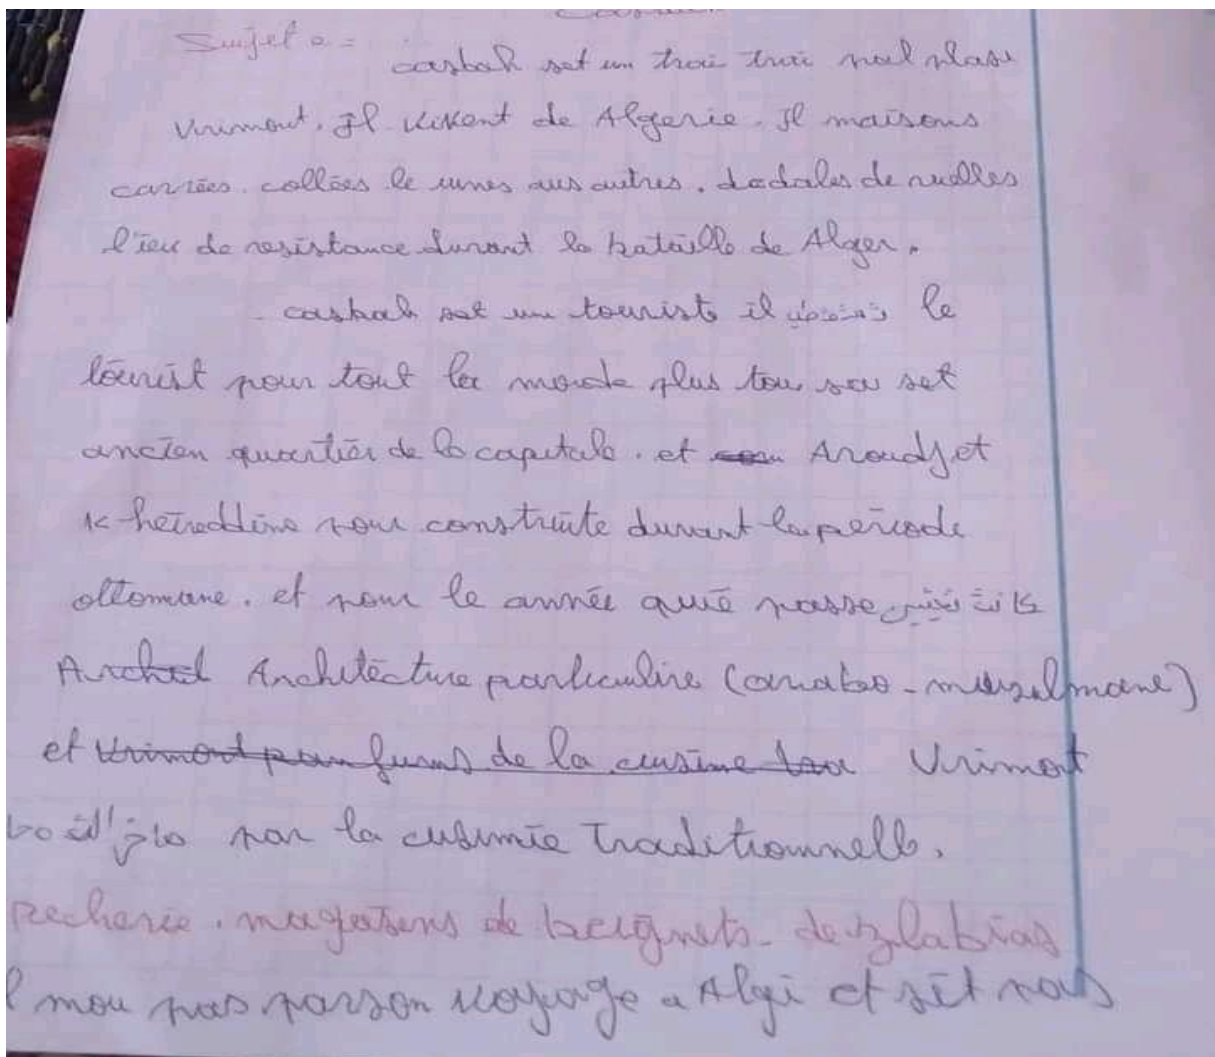 Sujet 2 :
casbah set un troi troi pol plase
Vrimont. Il vivent de Algerie. Il maisons
carrées collées le unes aus autres. dedales de ruelles
l'ieu de resistance durant la bataille de Alger.
casbah set un tourist il le
tourist pour tout le monde plus tou sa set
ancien quartier de la capitale. et Aroudj et
Kheireddine pour construite durant la période
ottomane. et pour le année quié passe كانت تعيش
Architecture particulire (arabo-musulmane)
et Vrimont
par la cusinie traditionnelle.
pecherie. magasins de beignets. de zlabias
mou pas parson voyage a Algi et sét pas